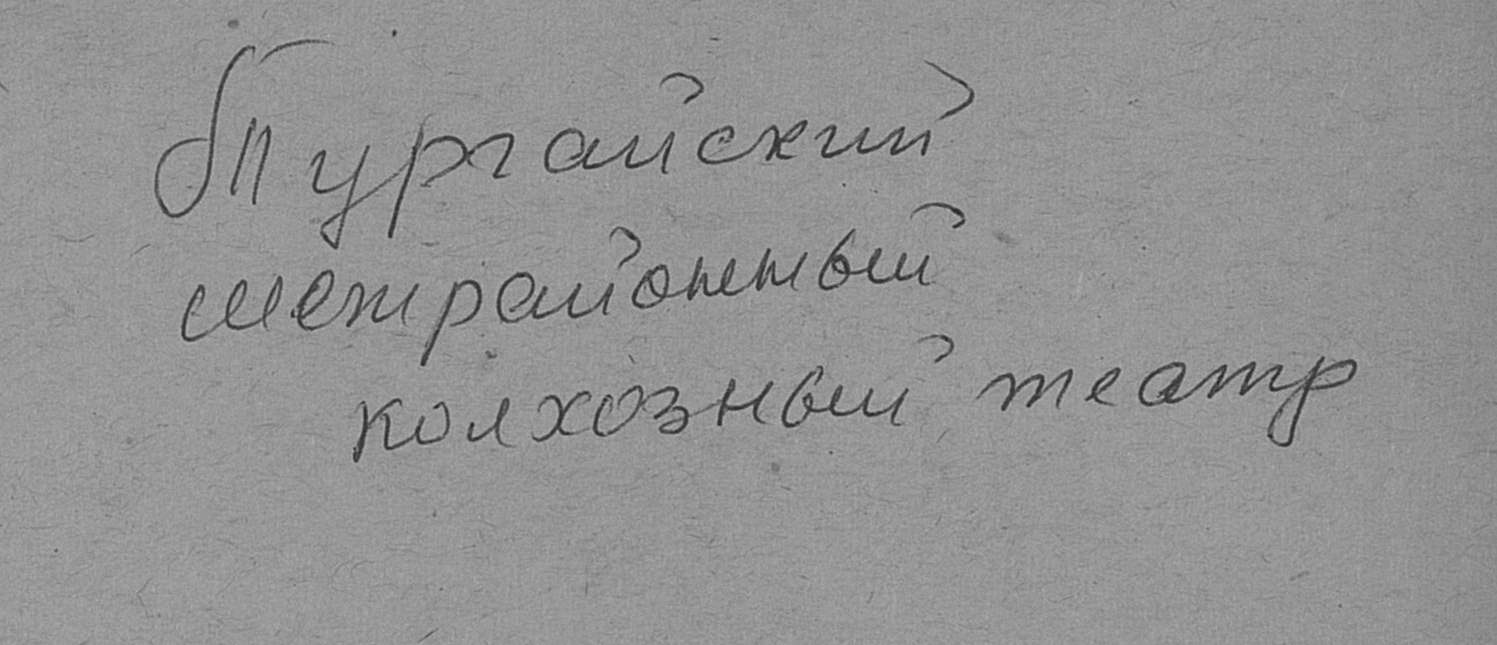 Тургайский
межрайонный
колхозный театр